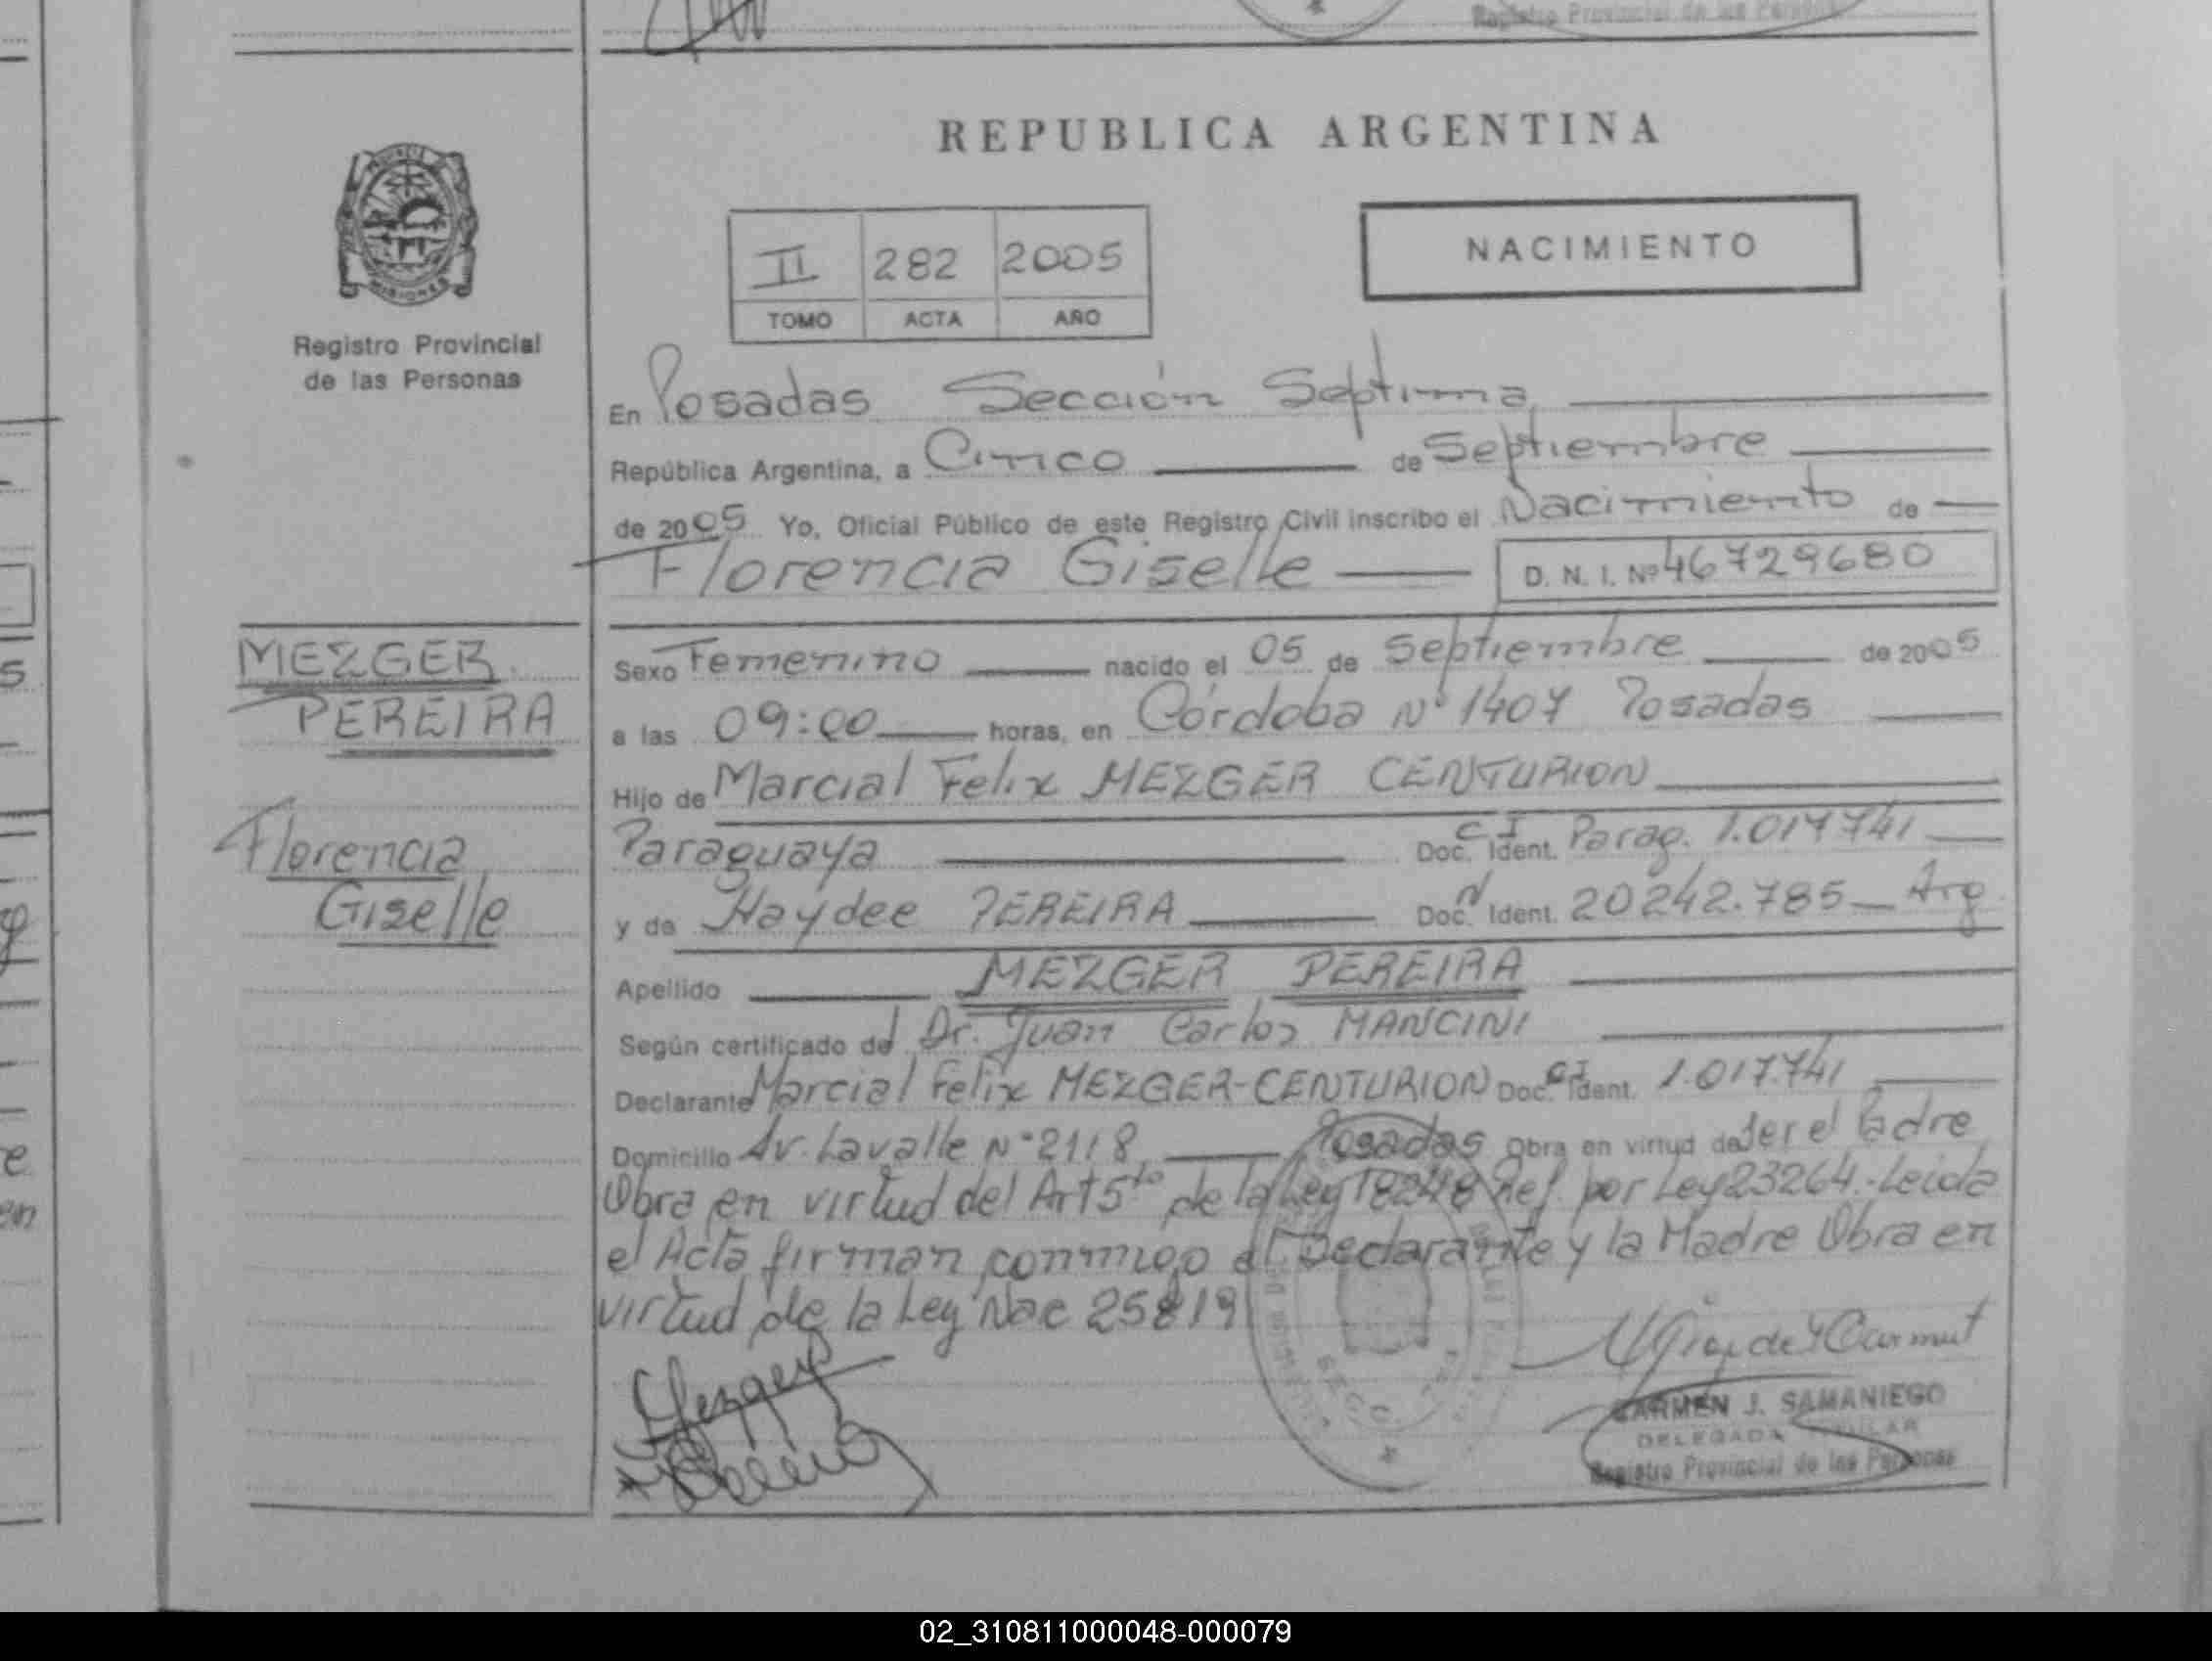 Registro Provincial de las Personas
REPUBLICA ARGENTINA
MISIONES
Registro Provincial
de las Personas
II 282 2005
TOMO ACTA AÑO
NACIMIENTO
En Posadas Sección Septima
República Argentina, a Cinco de Septiembre
de 2005 Yo, Oficial Público de este Registro Civil inscribo el Nacimiento de
Florencia Giselle D. N. I. Nº 46729680
MEZGER
PEREIRA
Florencia
Giselle
Sexo Femenino nacido el 05 de Septiembre de 2005
a las 09:00 horas, en Córdoba Nº 1407 Posadas
Hijo de Marcial Felix MEZGER CENTURION
Paraguaya Doc. CI Ident. Parag. 1.017741
y de Haydee PEREIRA Doc. N Ident. 20242.785 Arg
Apellido MEZGER PEREIRA
Según certificado del Dr. Juan Carlos MANCINI
Declarante Marcial Felix MEZGER-CENTURION Doc. CI Ident. 1.017.741
Domicilio Av. Lavalle Nº 2118 Posadas Obra en virtud de Ser el Padre
Obra en virtud del Art 5to de la Ley 18248 Ref por Ley 23264.-Leida
el Acta firman conmigo el Declarante y la Madre Obra en
virtud de la Ley Nac 25819
Mezger
CARMEN J. SAMANIEGO
DELEGADA TITULAR
Registro Provincial de las Personas
02_310811000048-000079